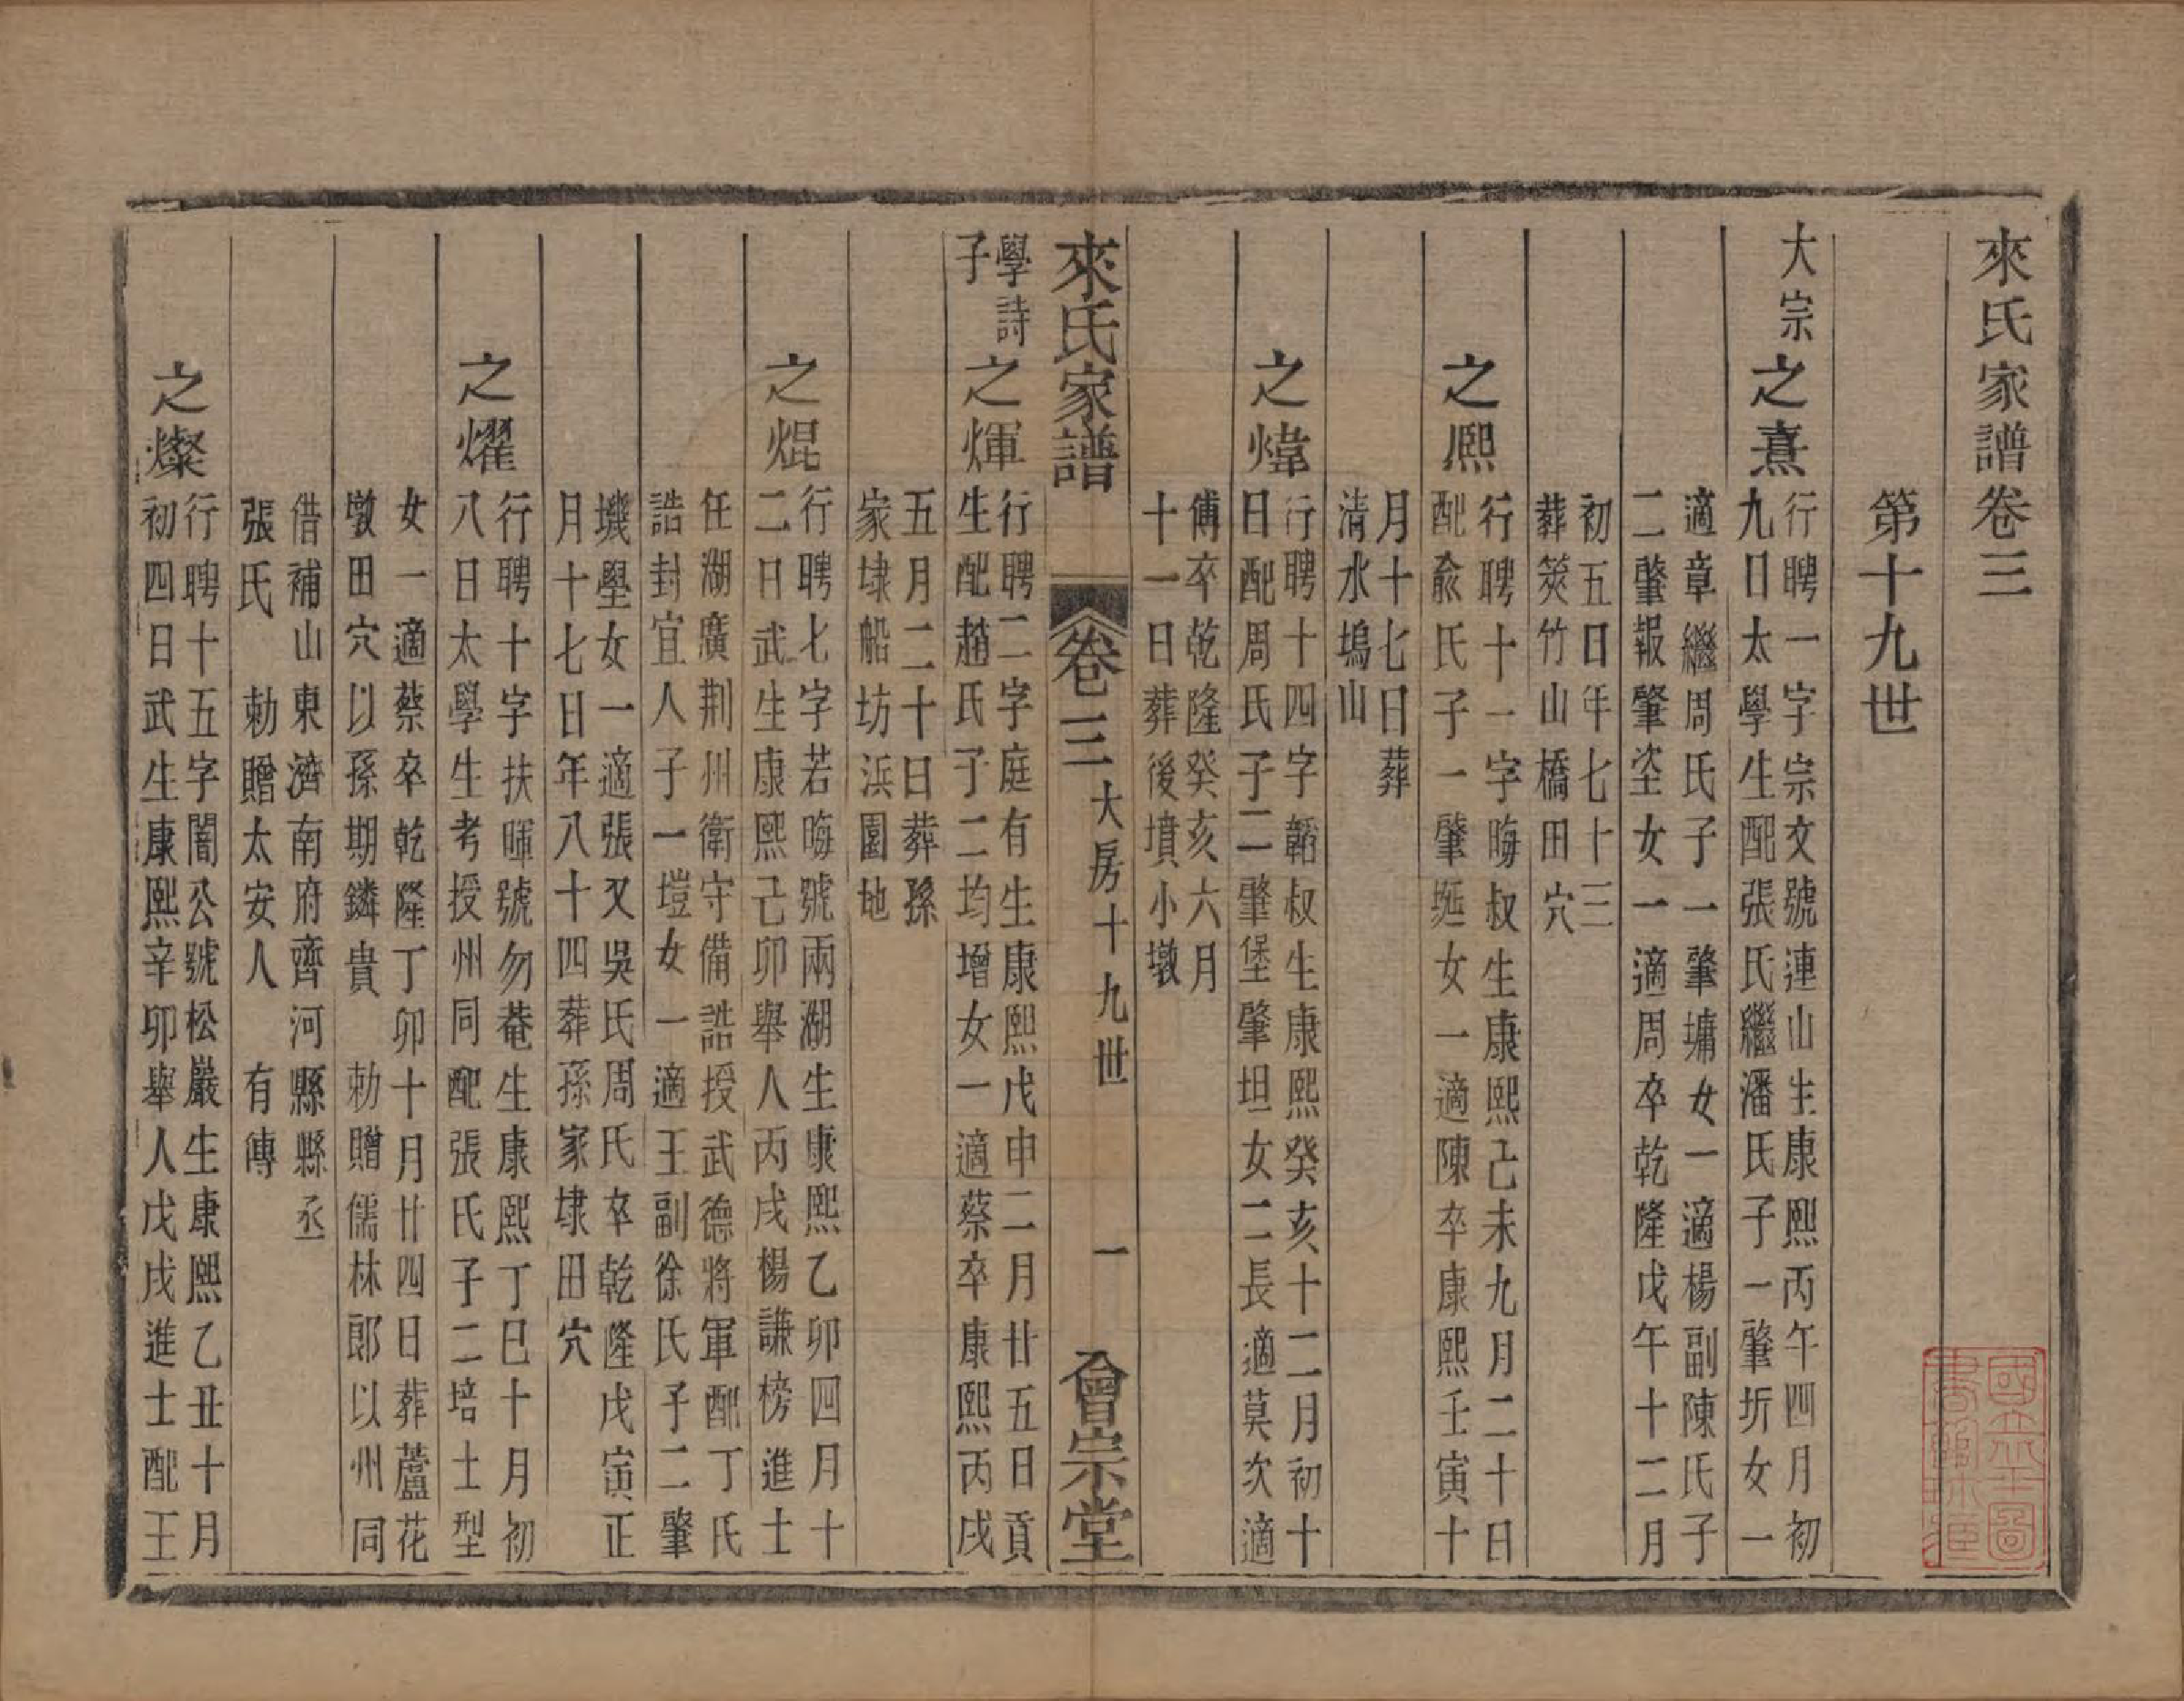 來氏家譜卷三
第十九世
大宗
之熹
行聘一字宗文號連山生康熙丙午四月初
九日太學生配張氏繼潘氏子一肇圻女一
適章繼周氏子一肇墉女一適楊副陳氏子
二肇報肇垐女一適周卒乾隆戊午十二月
初五日年七十三
葬筴竹山橋田穴
之熈
行聘十一字晦叔生康熙己未九月二十日
配俞氏子一肇女一適陳卒康熙壬寅十
月十七日葬
清水塢山
之煒
行聘十四字韜叔生康熙癸亥十二月初十
日配周氏子二肇堡肇坦女二長適莫次適
傅卒乾隆癸亥六月
十一日葬後墳小墩
來氏家譜
卷三
大房十九世
一
會宗堂
學詩
子
之煇
行聘二字庭有生康熙戊申二月廿五日貢
生配趙氏子二均增女一適蔡卒康熙丙戌
五月二十日葬孫
家埭船坊浜園地
之焜
行聘七字若晦號兩湖生康熙乙卯四月十
二日武生康熙己卯舉人丙戌楊謙榜進士
任湖廣荆州衛守備誥授武德將軍配丁氏
誥封宜人子一塏女一適王副徐氏子二肇
璣壆女一適張又吳氏周氏卒乾隆戊寅正
月十七日年八十四葬孫家埭田穴
之燿
行聘十字扶暉號勿菴生康熙丁巳十月初
八日太學生考授州同配張氏子二培士型
女一適蔡卒乾隆丁卯十月廿四日葬蘆花
墩田穴以孫期鏻貴　勅贈儒林郎以州同
借補山東濟南府齊河縣縣丞
張氏　勅贈太安人　有傳
之燦
行聘十五字闇公號松巖生康熙乙丑十月
初四日武生康熙辛卯舉人戊戌進士配王